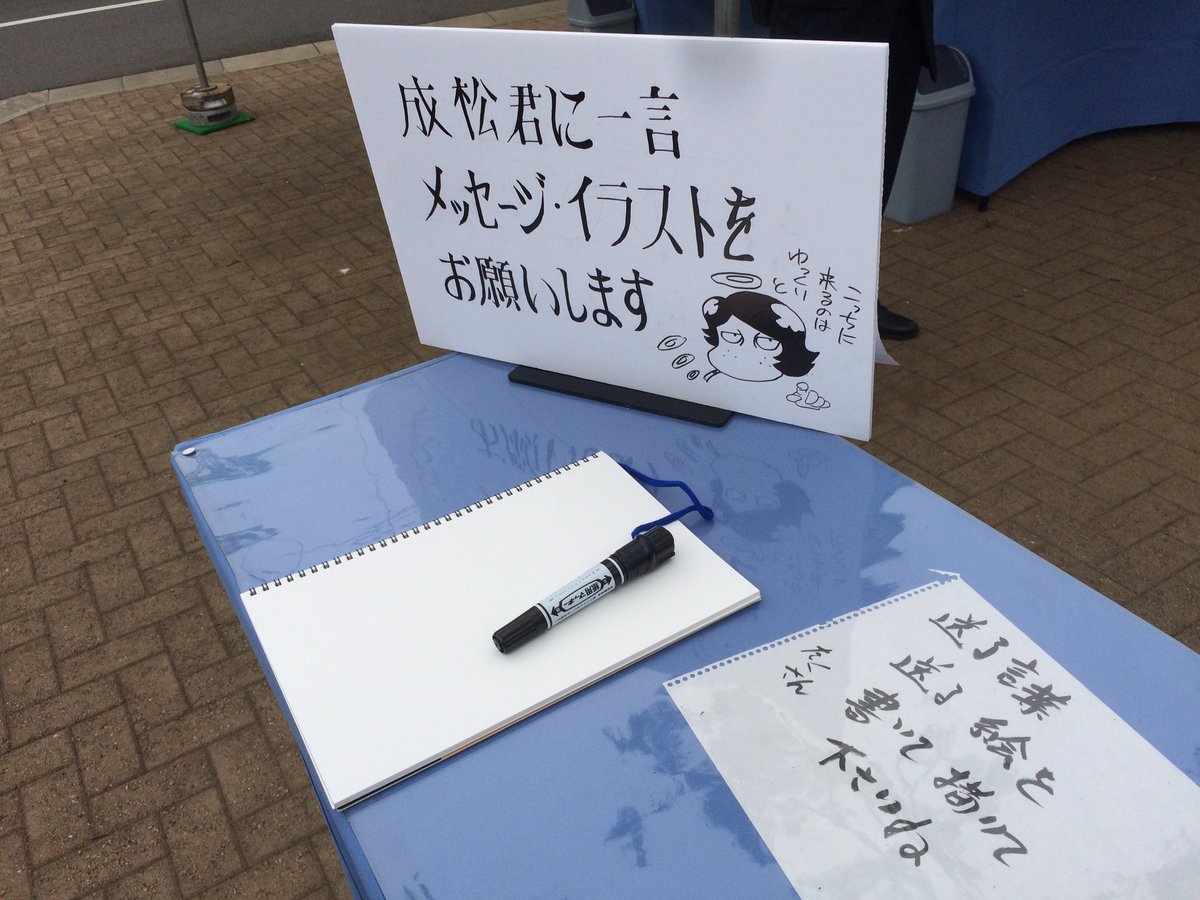 成松君に一言
メッセージ・イラストを
お願いします
こっちに
来るのは
ゆっくり
と
送る言葉
送る絵を
たくさん
書いて描いて
下さいね